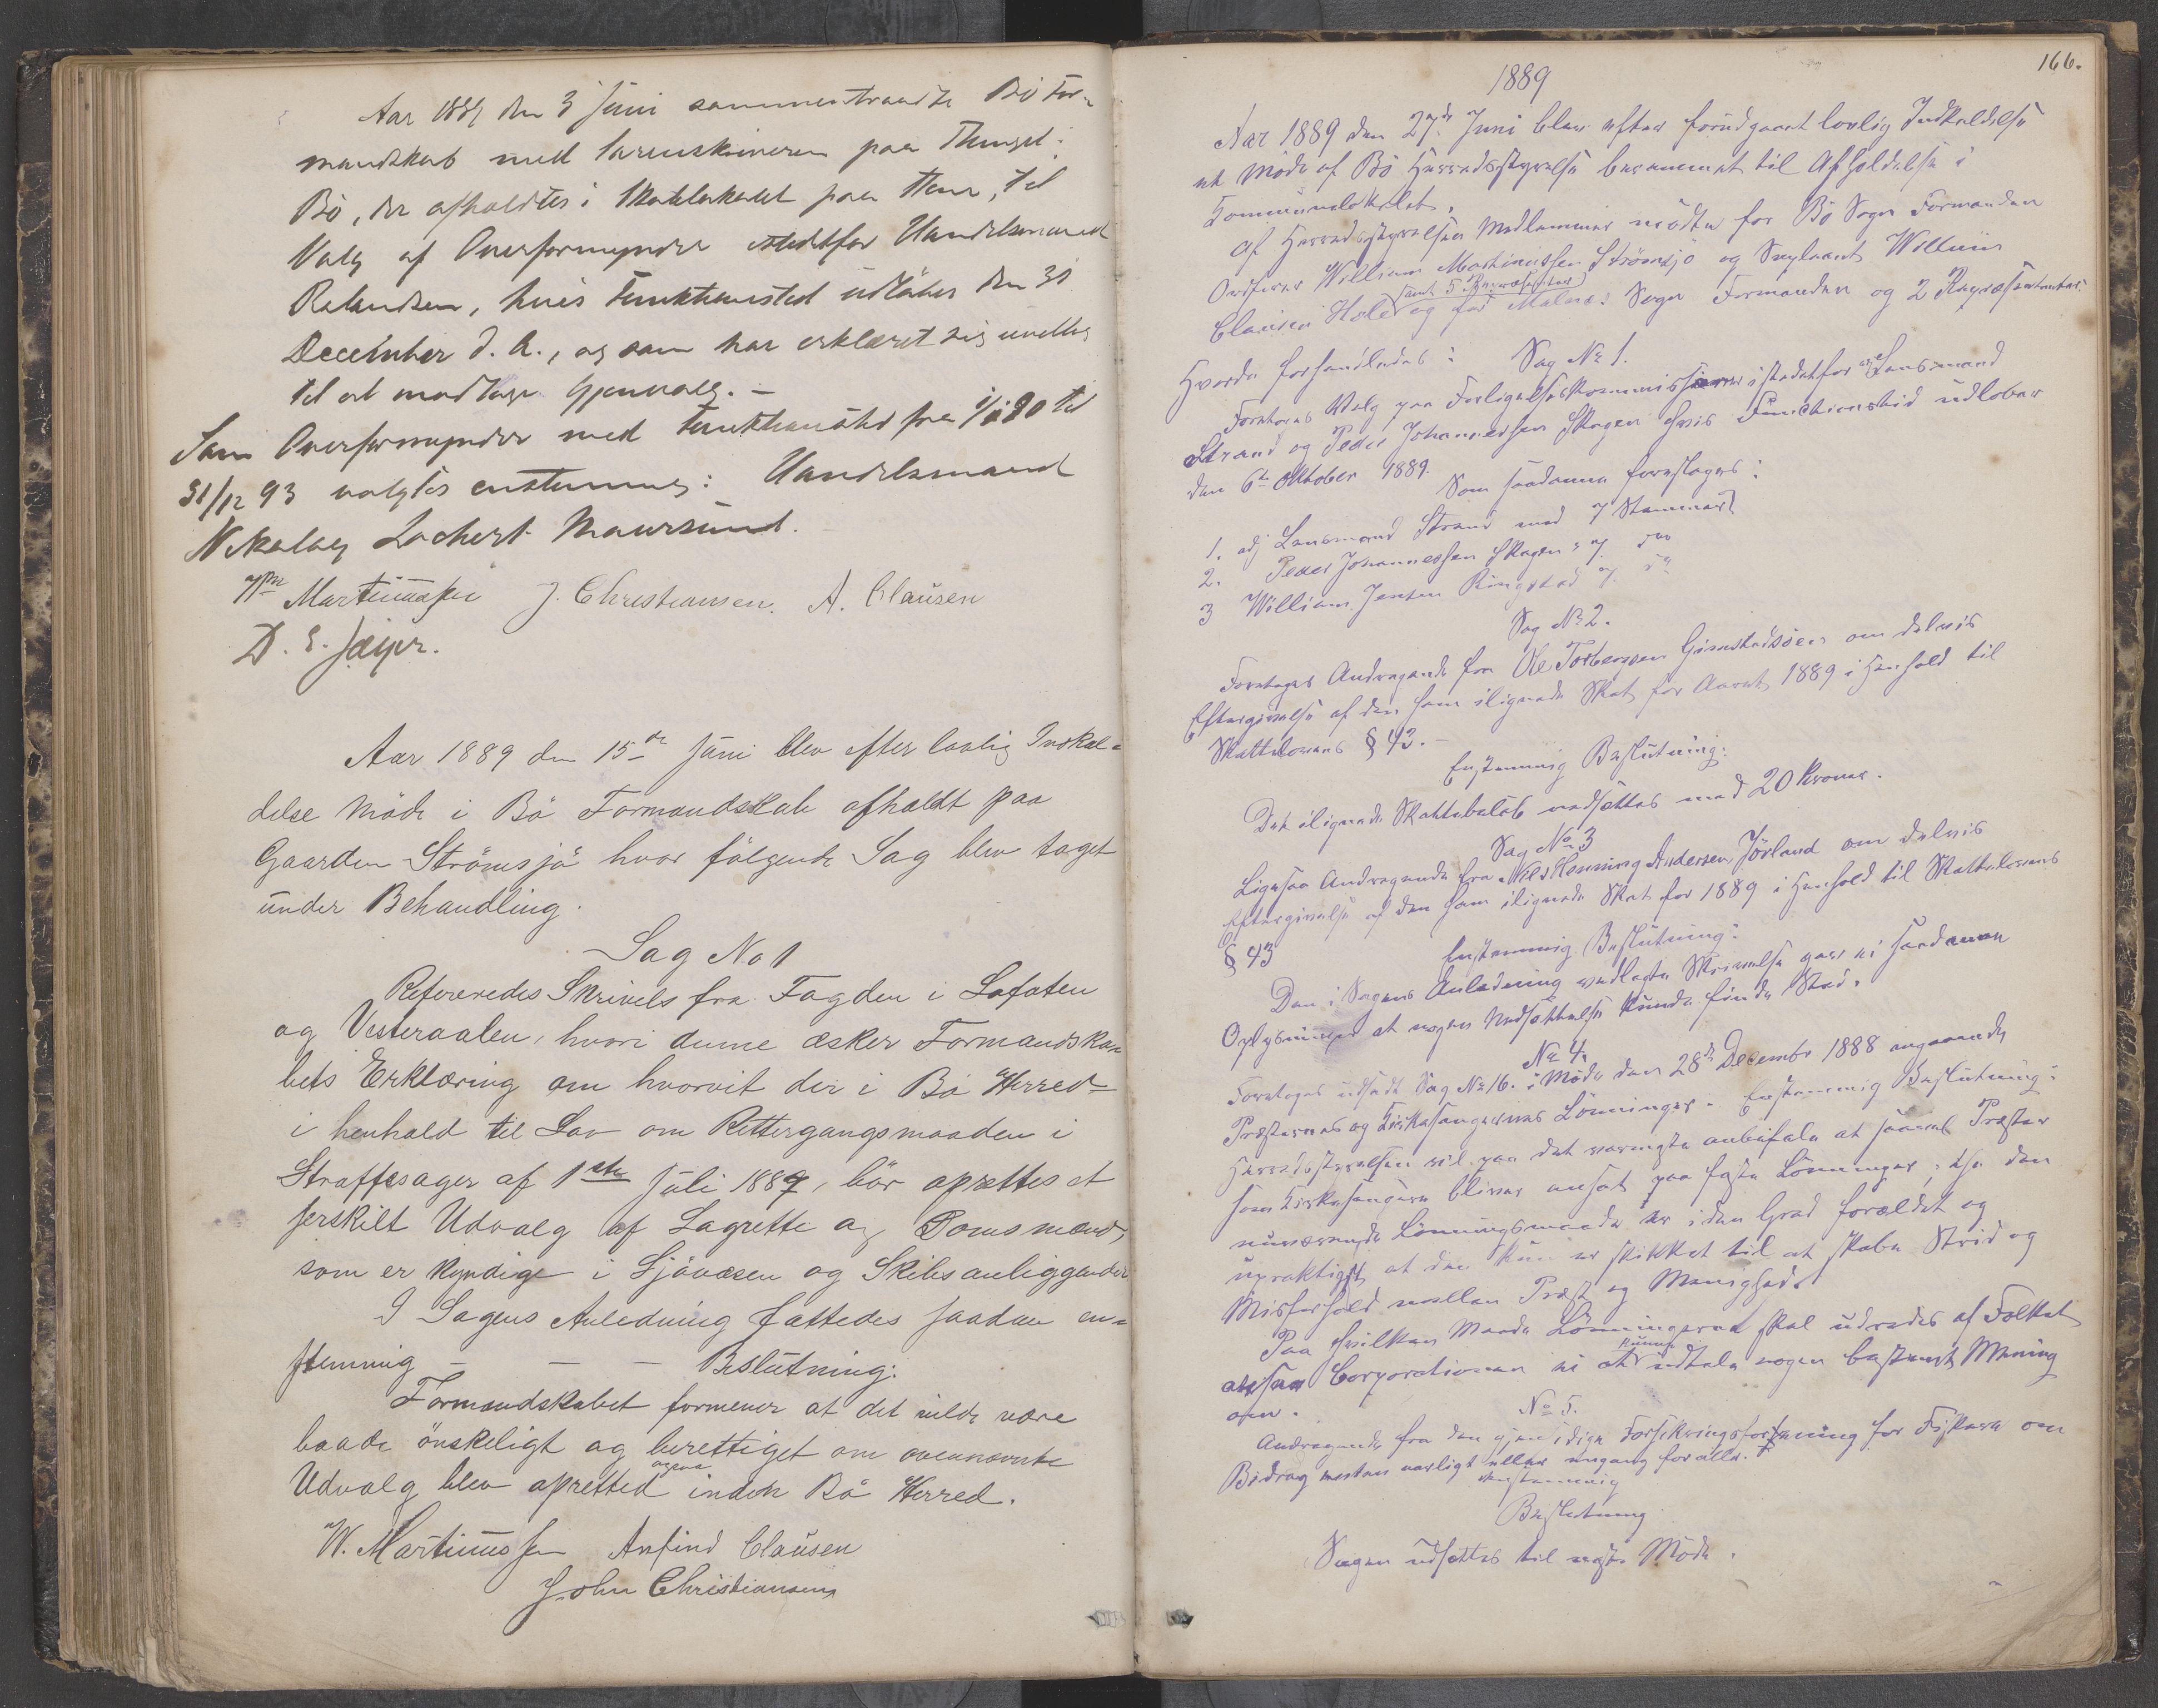 Aar 1889 den 3 Juni sammentraadte Bö For-
mandskab med Sorenskriveren paa Thinget i
Bö, der afholdtes i Skolelokalet paa Steine, til
Valg af Overformynder istedetfor Handelsmand
Rolandsen, hvis Funktionstid udlöber den 31
December d. A., og som har erklæret sig uvillig
til at modtage Gjenvalg. –
Som Overformynder med Funktionstid fra 1/1 90 til
31/12 93 valgtes enstemmig: Handelsmand
Nikolay Lochert Maursund.
Wm Martinussen J. Christiansen. A. Clausen
D. E.
Aar 1889 den 15de Juni blev efter lovlig Indkal-
delse Möde i Bö Formandskab afholdt paa
Gaarden Strömsjö hvor fölgende Sag blev taget
under Behandling.
Sag No 1
Refereredes Skrivels fra Fogden i Lofoten
og Vesteraalen, hvori denne æsker Formandska-
bets Erklæring om hvorvit der i Bö Herred
i henhold til Lov om Rettergangsmaaden i
Straffesager af 1ste Juli 1887, bör oprettes et
særskilt Udvalg af Lagrette og Domsmænd,
som er kyndige i Sjövæsen og Skibsanliggender
I Sagens Anledning fattedes saadan en-
stemmig – – – Beslutning:
Formandskabet formener at det vilde være
baade önskeligt og berettiget om ovennævnte
Udvalg blev opretted ogsaa inden Bö Herred.
W. Martinussen Anfind Clausen
John Christiansen
166.
1889
Aar 1889 den 27de Juni blev efter forudgaaet lovlig Indkaldelse
et Möde af Bö Herredsstyrelse berammet til Afholdelse i
Kommunelokalet.
Af Herredsstyrelsens Medlemmer mödte for Bö Sogn Formanden
Ordförer William Martinussen Strömsjö og Suppleant William
Clausen Hole samt 5 Repræsentanter og for Malnes Sogn Formanden og 2 Repræsentanter.
Hvorda forhandledes: Sag No 1.
Foretages Valg paa Forligelseskommissærer istedetfor adj Lensmand
Strand og Peder Johannessen Skagen hvis Functionstid udlöber
den 6te Oktober 1889.
Som saadanne foreslages:
1. adj Lensmand Strand med 7 Stemmer
2. Peder Johannessen Skagen " 7 do
3 William Jensen Ringstad " 7 do
Sag No 2.
Foretages Andragende fra Ole Torbersen Guvstadsöen om delvis
Eftergivelse af den ham ilignede Skat for Aaret 1889 i Henhold til
Skattelovens § 43. –
Enstemmig Beslutning:
Det ilignede Skattebelöb nedsættes med 20 Kroner.
Sag No 3
Ligesaa Andragende fra Nils Henning Andersen Jörland om delvis
Eftergivelse af den ham ilignede Skat for 1889 i Henhold til Skattelovens
§ 43
Enstemmig Beslutning:
Den i Sagens Anledning vedlagte Skrivelse gav ei saadanne
Oplysninger at nogen Nedsættelse kunde finde Sted.
No 4.
Foretages udsadt Sag No 16. i Möde den 28de December 1888 angaaende
Præsternes og Kirkesangernes Lönninger. Enstemmig Beslutning:
Herredsstyrelsen vil paa det varmeste anbefale at saavel Præster
som Kirkesangere bliver ansat paa faste Lönninger, thi den
nuværende Lönningsmaade er i den Grad forældet og
upraktigst, at den kun er skikket til at skabe Strid og
Misforhold mellem Præst og Menighed.
Paa hvilken Maade Lönningerne skal udredes af Folket
Corporationen ei at kunne udtale nogen bestemt Mening
om.
No 5.
Andragende fra den gjensidige Forsikringsforening for Fiskere om
Bidrag enten aarligt eller engang for alle.
Enstemmig
Beslutning
Sagen udsættes til næste Möde.